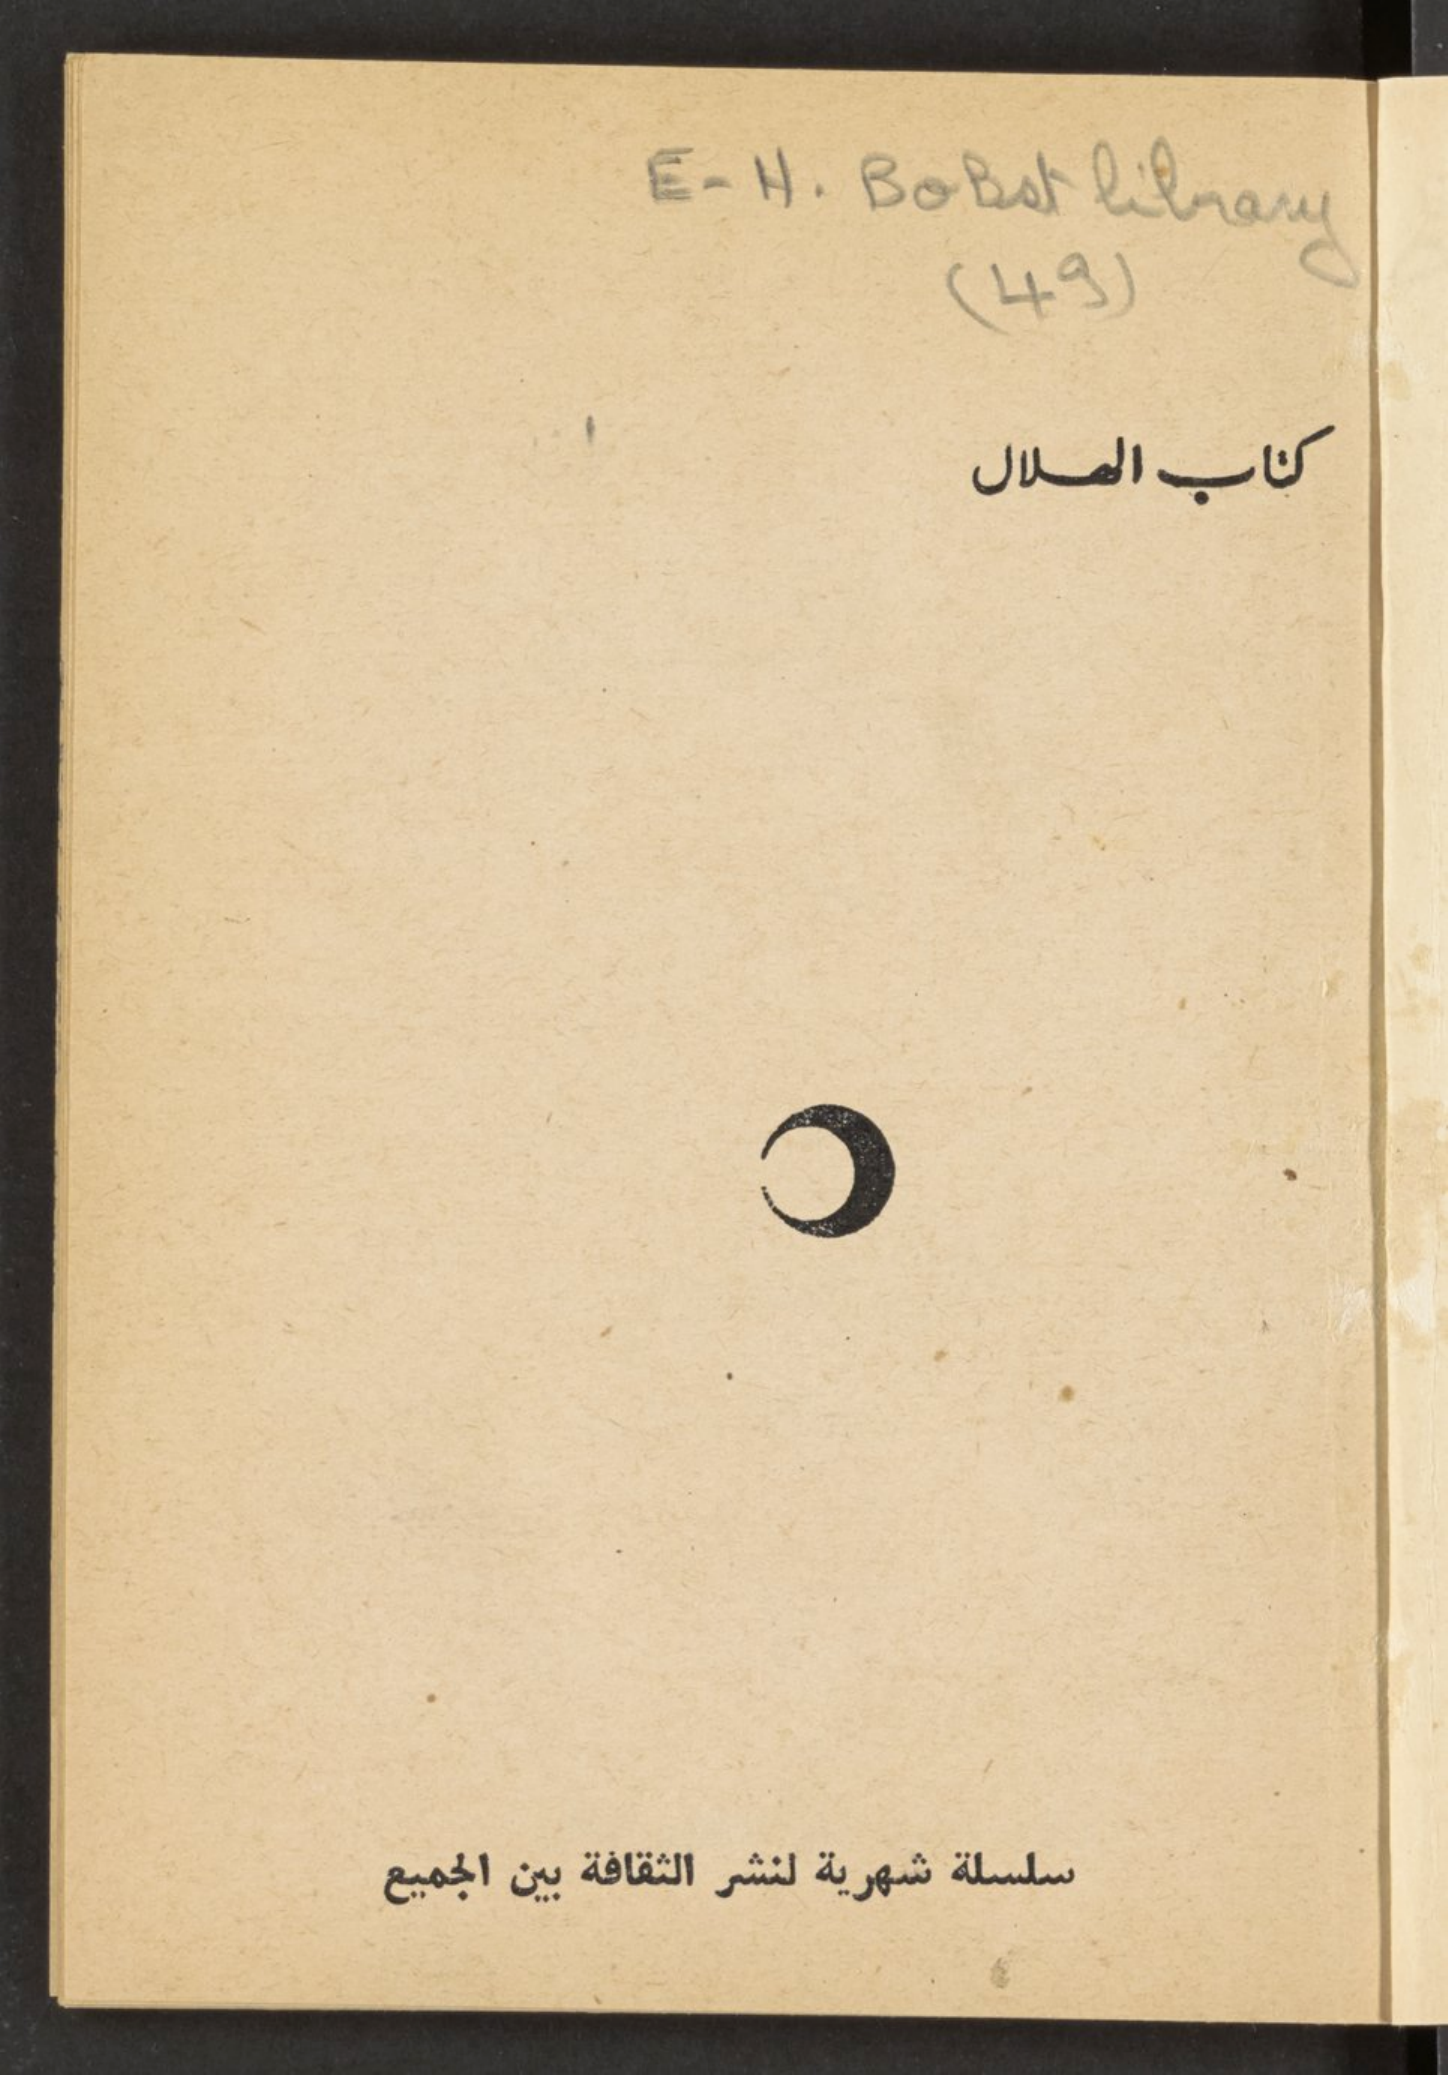 E-H. BoBst library
(49)
كتاب الهلال
سلسلة شهرية لنشر الثقافة بين الجميع